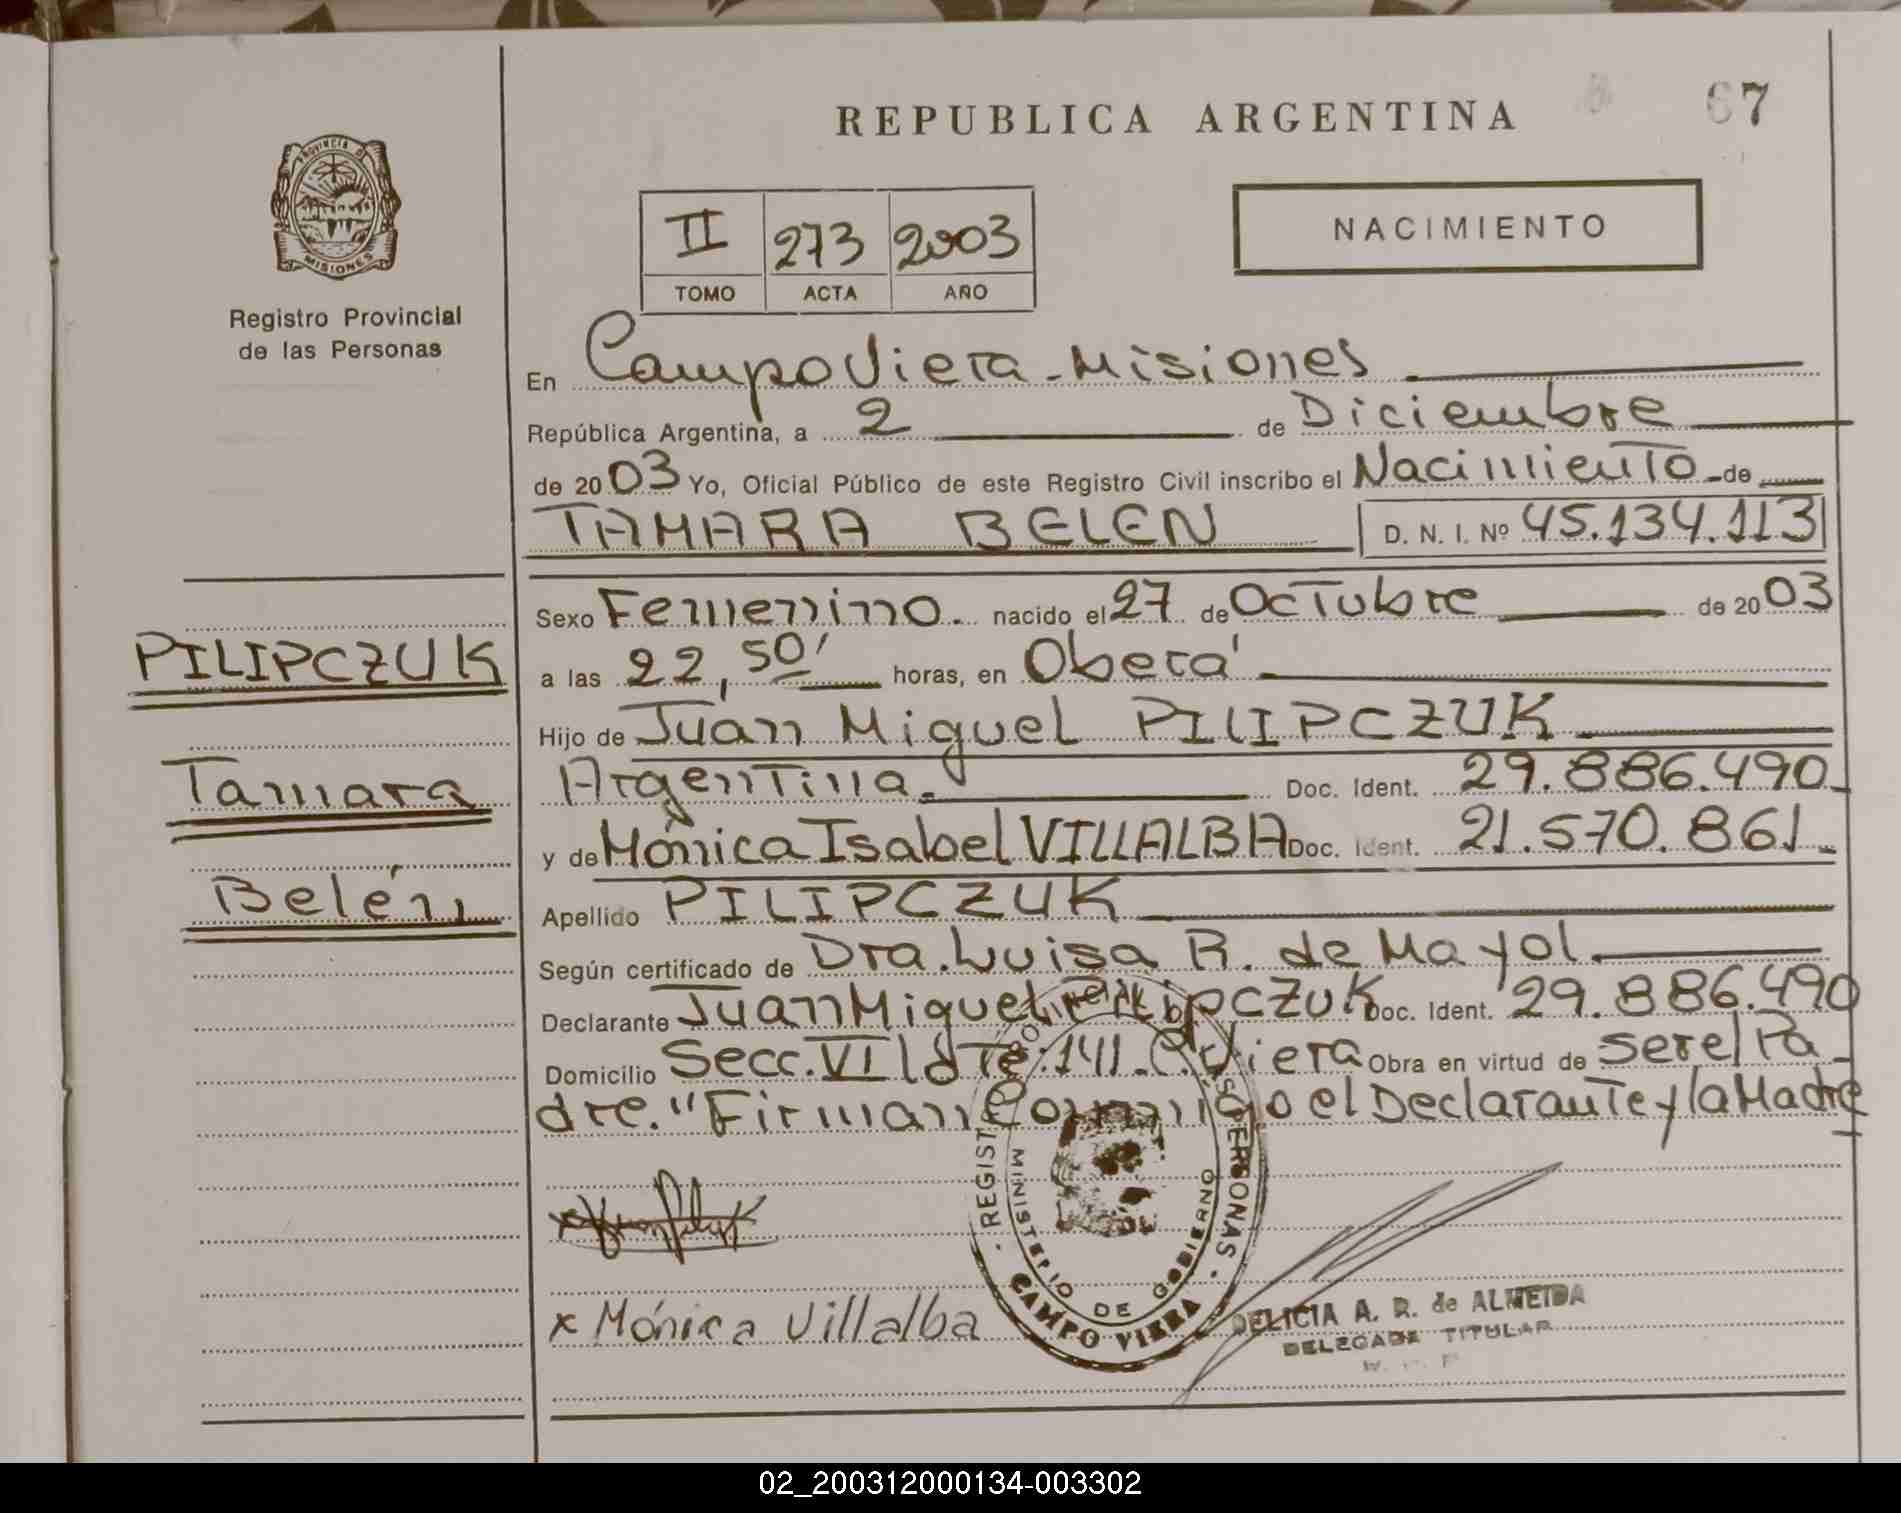 REPUBLICA ARGENTINA
67
PROVINCIA D
MISIONES
Registro Provincial
de las Personas
II 273 2003
TOMO ACTA AÑO
NACIMIENTO
En Campo Viera - Misiones
República Argentina, a 2 de Diciembre
de 2003 Yo, Oficial Público de este Registro Civil inscribo el Nacimiento - de
TAMARA BELEN D. N. I. Nº 45.134.113
Sexo Femenino. nacido el 27 de Octubre de 2003
PILIPCZUK
a las 22,50' horas, en Oberá
Hijo de Juan Miguel PILIPCZUK
Tamara
Argentina. Doc. Ident. 29.886.490
y de Mónica Isabel VILLALBA Doc. Ident. 21.570.861
Belén
Apellido PILIPCZUK
Según certificado de Dra. Luisa R. de Mayol
Declarante Juan Miguel Pilipczuk Doc. Ident. 29.886.490
Domicilio Secc. VI lote: 141 - C. Viera Obra en virtud de ser el Pa-
dre. "Firman Conmigo el Declarante y la Madre
REGIST ERSONAS
MINISTERIO DE GOBIERNO
CAMPO VIERA
x Mónica Villalba
DELICIA A. R. de ALMEIDA
DELEGADA TITULAR
02_200312000134-003302